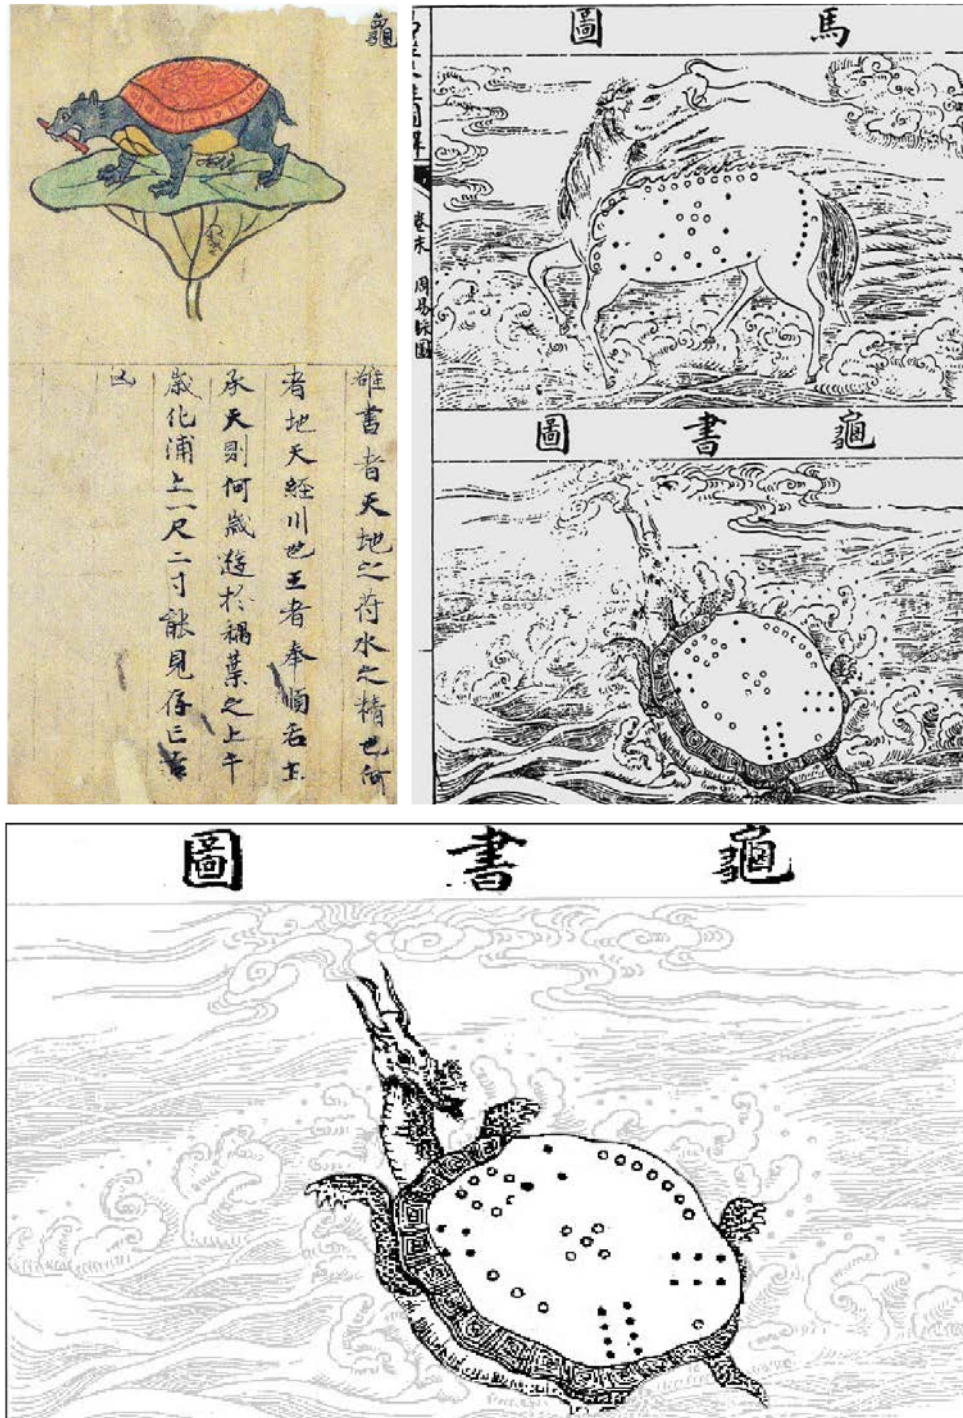 龜
雒書者天地之符水之精也何
者地天經川也王者奉順后土
承天則何歲遊於禍葉之上千
歲化浦上一尺二寸能見存亡吉
凶
馬圖
卷末 周易采圖
龜書圖
龜書圖